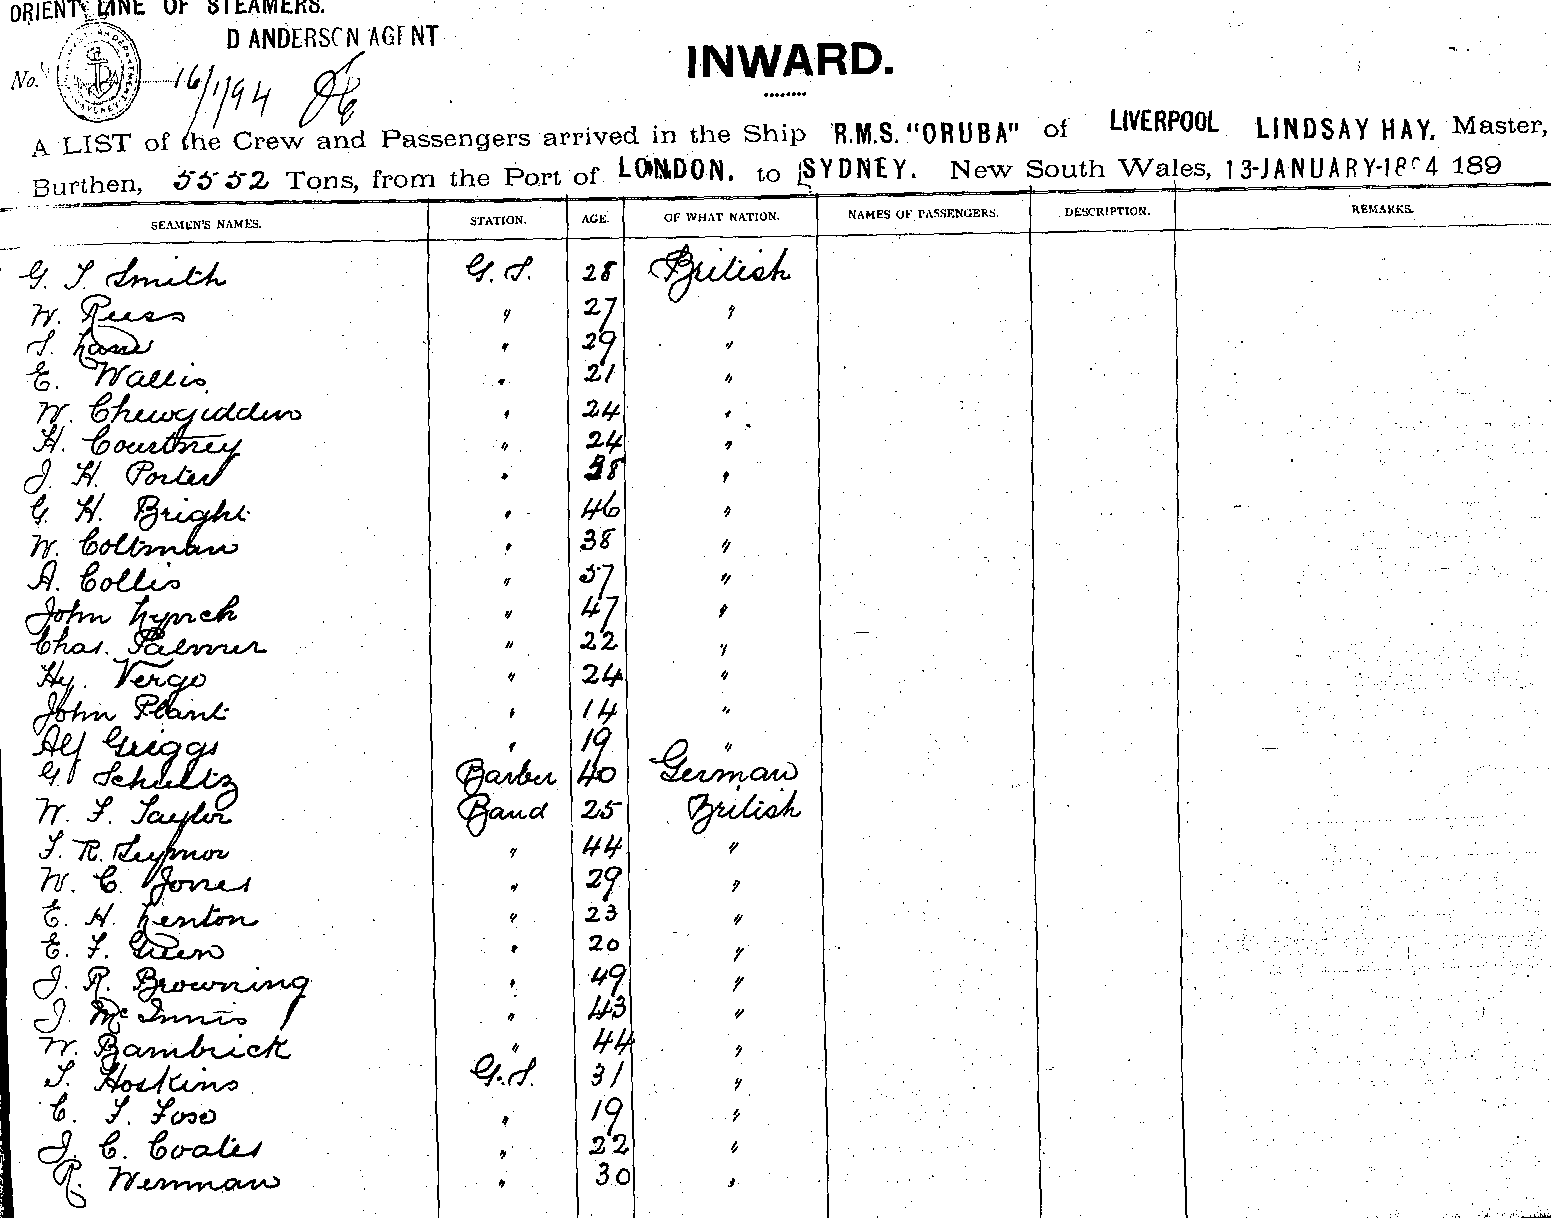 ORIENT LINE OF STEAMERS.
D ANDERSON AGENT
INWARD.
No. 16/1/94
A LIST of the Crew and Passengers arrived in the Ship R.M.S. "ORUBA" of LIVERPOOL LINDSAY HAY. Master,
Burthen, 5552 Tons, from the Port of LONDON. to SYDNEY. New South Wales, 13-JANUARY-1894 189
SEAMEN'S NAMES. STATION. AGE. OF WHAT NATION. NAMES OF PASSENGERS. DESCRIPTION. REMARKS.
G. T. Smith G. S. 28 British
W. Rees " 27 "
T. Lane " 29 "
E. Wallis " 21 "
W. Chewgidden " 24 "
H. Courtney " 24 "
J. H. Porter " 38 "
G. H. Bright " 46 "
W. Coltman " 38 "
A. Collis " 37 "
John Lynch " 47 "
Chas. Palmer " 22 "
Hy. Vergo " 24 "
John Plant " 14 "
Alf Griggs " 19 "
G. Schultz Barber 40 German
W. F. Taylor Band 25 British
T. R. Seymor " 44 "
W. C. Jones " 29 "
E. H. Lenton " 23 "
E. F. Green " 20 "
J. R. Browning " 49 "
J. McInnis " 43 "
W. Bambrick " 44 "
T. Hoskins G.S. 31 "
C. F. Foso " 19 "
J. C. Coates " 22 "
R. Wenman " 30 "